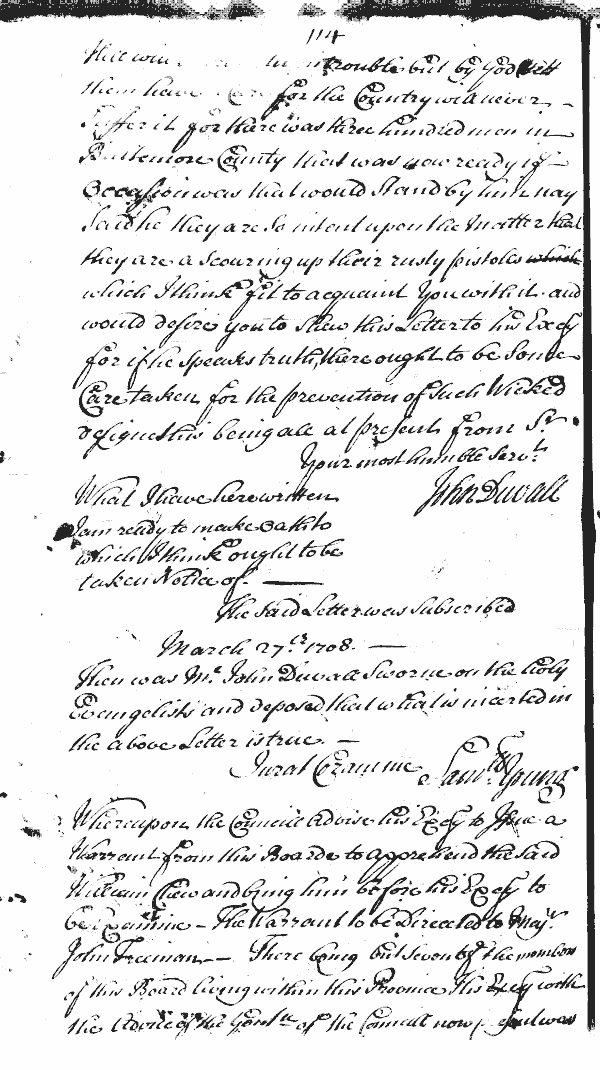 114
trouble but by God
them have for the Country will never
Suffer it for there was three hundred men in
Baltemore County that was now ready if
Occassion was that would Stand by him nay
Said he they are So intent upon the Matter that
they are a Scouring up their rusty pistoles which
which I think fit to acquaint You with it and
would desire you to Shew this Letter to his Excy
for if he Speaks truth, there ought to be Some
Care taken for the prevention of Such Wicked
designes this being all at present from Sr.
Your most humble Servt.
What I have here written John Duvall
I am ready to make Oath to
which I think ought to be
taken Notice of. —
The said Letter was Subscribed
March 27th 1708. —
Then was Mr. John Duvall Sworne on the holy
Evangelists and deposed that what is incerted in
the above Letter is true. —
Jurat Coram me Samll. Young
Whereupon the Councill Advise his Excy to Issue a
Warrant from this Boarde to apprehend the said
William Chew and bring him before his Excy to
be Examine - The Warrant to be Directed to Majr.
John Freeman — There being but Seven of the members
of this Board living within this Province His Excy with
the Advice of the Gent of the Councill now was